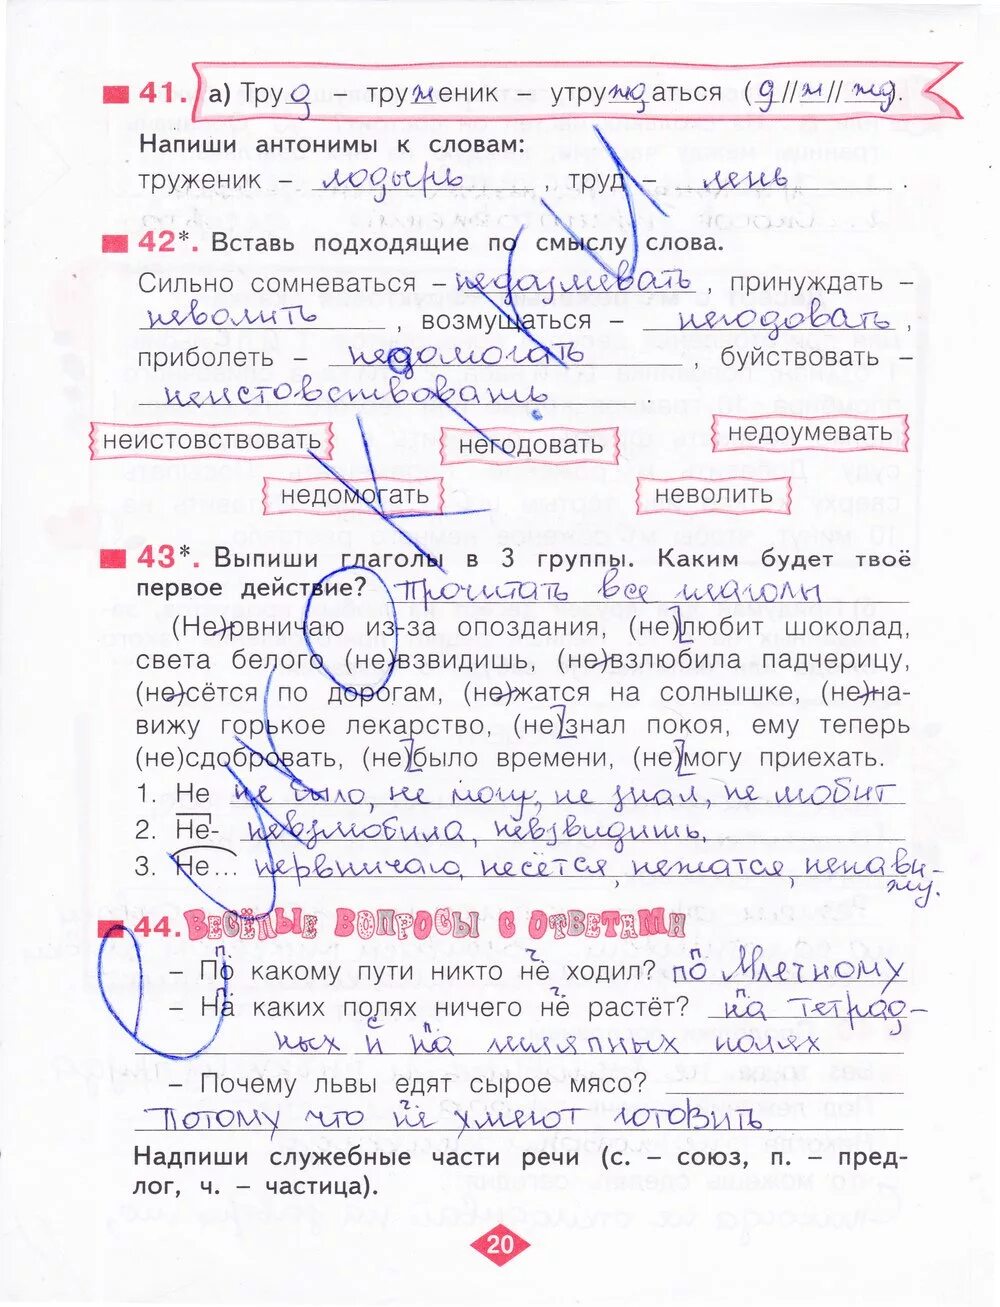 41. а) Труд – труженик – утруждаться (д//ж//жд.
Напиши антонимы к словам:
труженик – лодырь , труд – лень .
42*. Вставь подходящие по смыслу слова.
Сильно сомневаться – недоумевать , принуждать –
неволить , возмущаться – негодовать ,
приболеть – недомогать , буйствовать –
неистовствовать
неистовствовать негодовать недоумевать
недомогать неволить
43*. Выпиши глаголы в 3 группы. Каким будет твоё
первое действие? Прочитать все глаголы
(Не)рвничаю из-за опоздания, (не)любит шоколад,
света белого (не)взвидишь, (не)взлюбила падчерицу,
(не)сётся по дорогам, (не)жатся на солнышке, (не)на-
вижу горькое лекарство, (не)знал покоя, ему теперь
(не)сдобровать, (не)было времени, (не)могу приехать.
1. Не не было, не могу, не знал, не любит
2. Не- невзлюбила, невзвидишь,
3. Не... нервничаю, несётся, нежатся, ненави-
жу.
44. ВЕСЁЛЫЕ ВОПРОСЫ С ОТВЕТАМИ
п ч п
– По какому пути никто не ходил? по Млечному
п ч п
– На каких полях ничего не растёт? на тетрад-
с п
ных и на шляпных полях
– Почему львы едят сырое мясо?
с ч
Потому что не умеют готовить
Надпиши служебные части речи (с. – союз, п. – пред-
лог, ч. – частица).
20